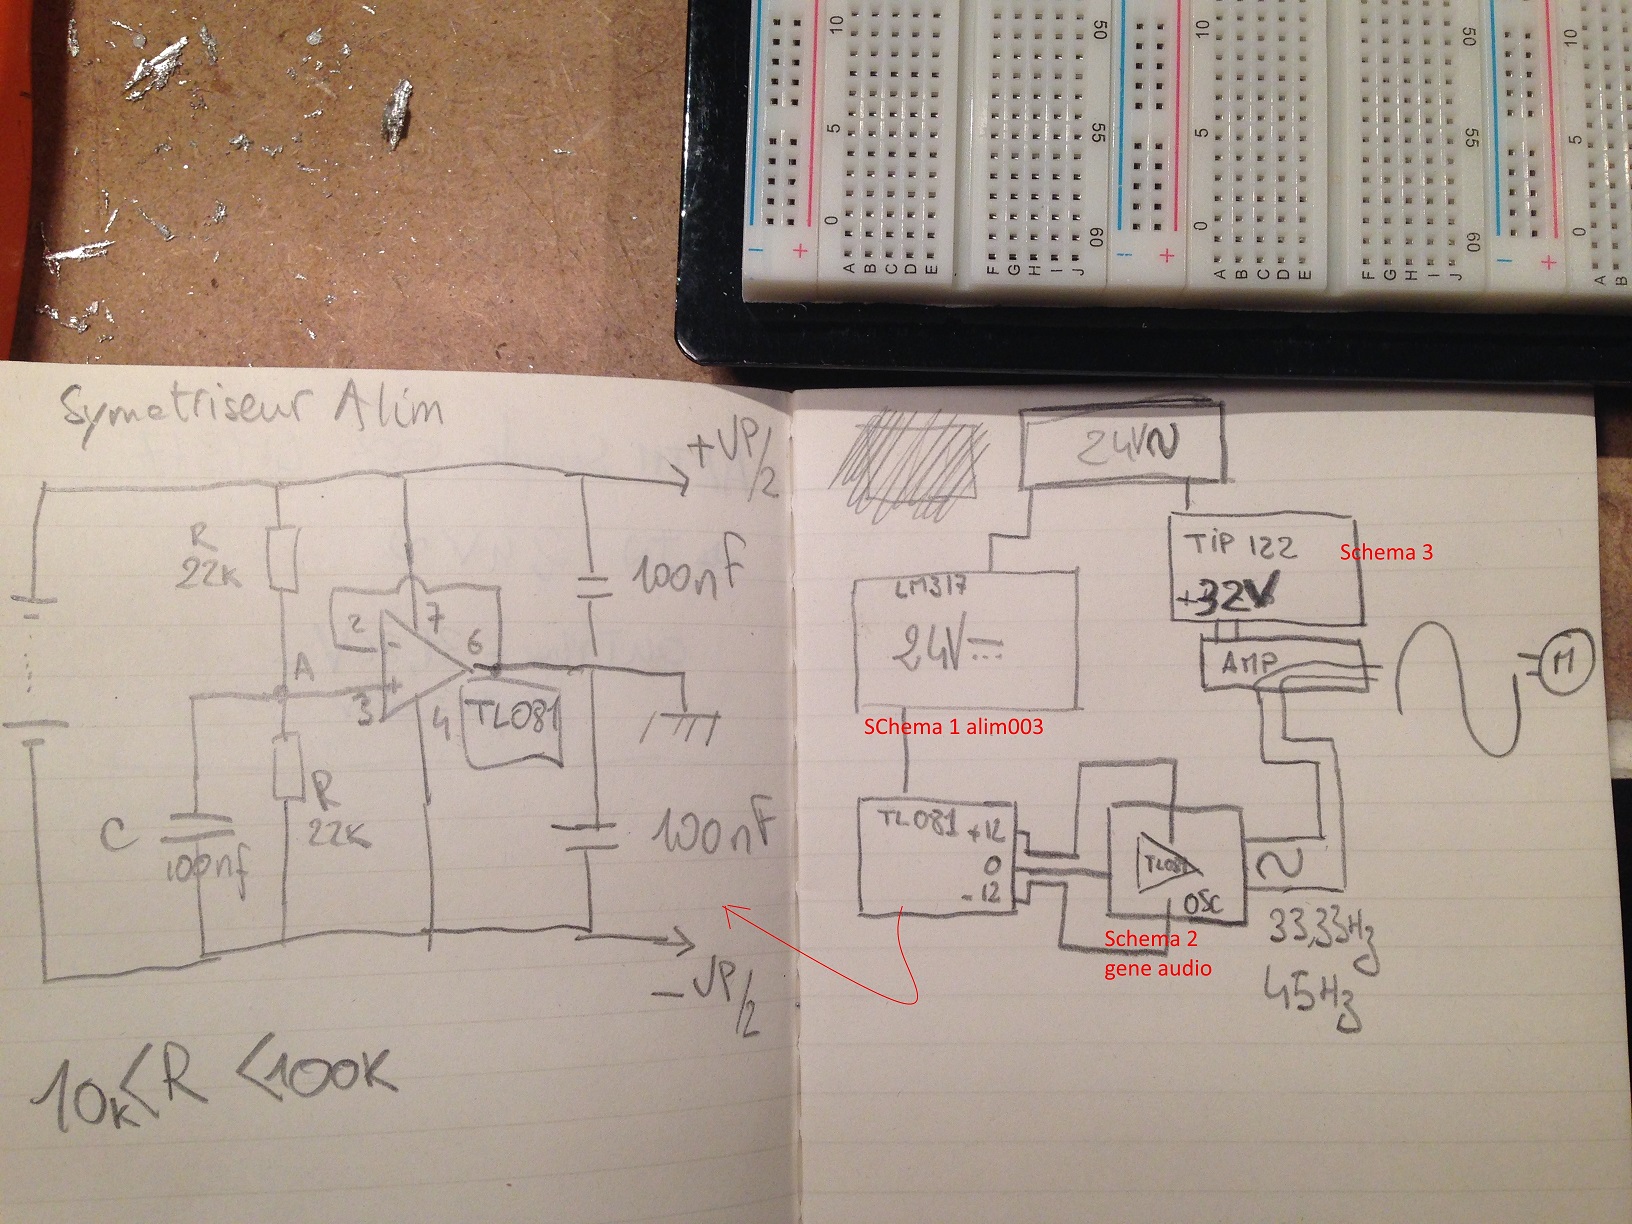 10
5
0
50
55
60
10
5
0
50
55
60
10
5
0
A B C D E
F G H I J
A B C D E
F G H I J
A B
Symetriseur Alim
+VP/2
R
22K
100nF
2
7
6
-
A
+
3
4
TL081
R
22K
C
100nf
100nF
-VP/2
10K<R<100K
24V~
TIP 122
+32V
Schema 3
LM317
24V
AMP
M
SChema 1 alim003
TL081
+12
0
-12
TL081
OSC
Schema 2
gene audio
33,33Hz
45Hz